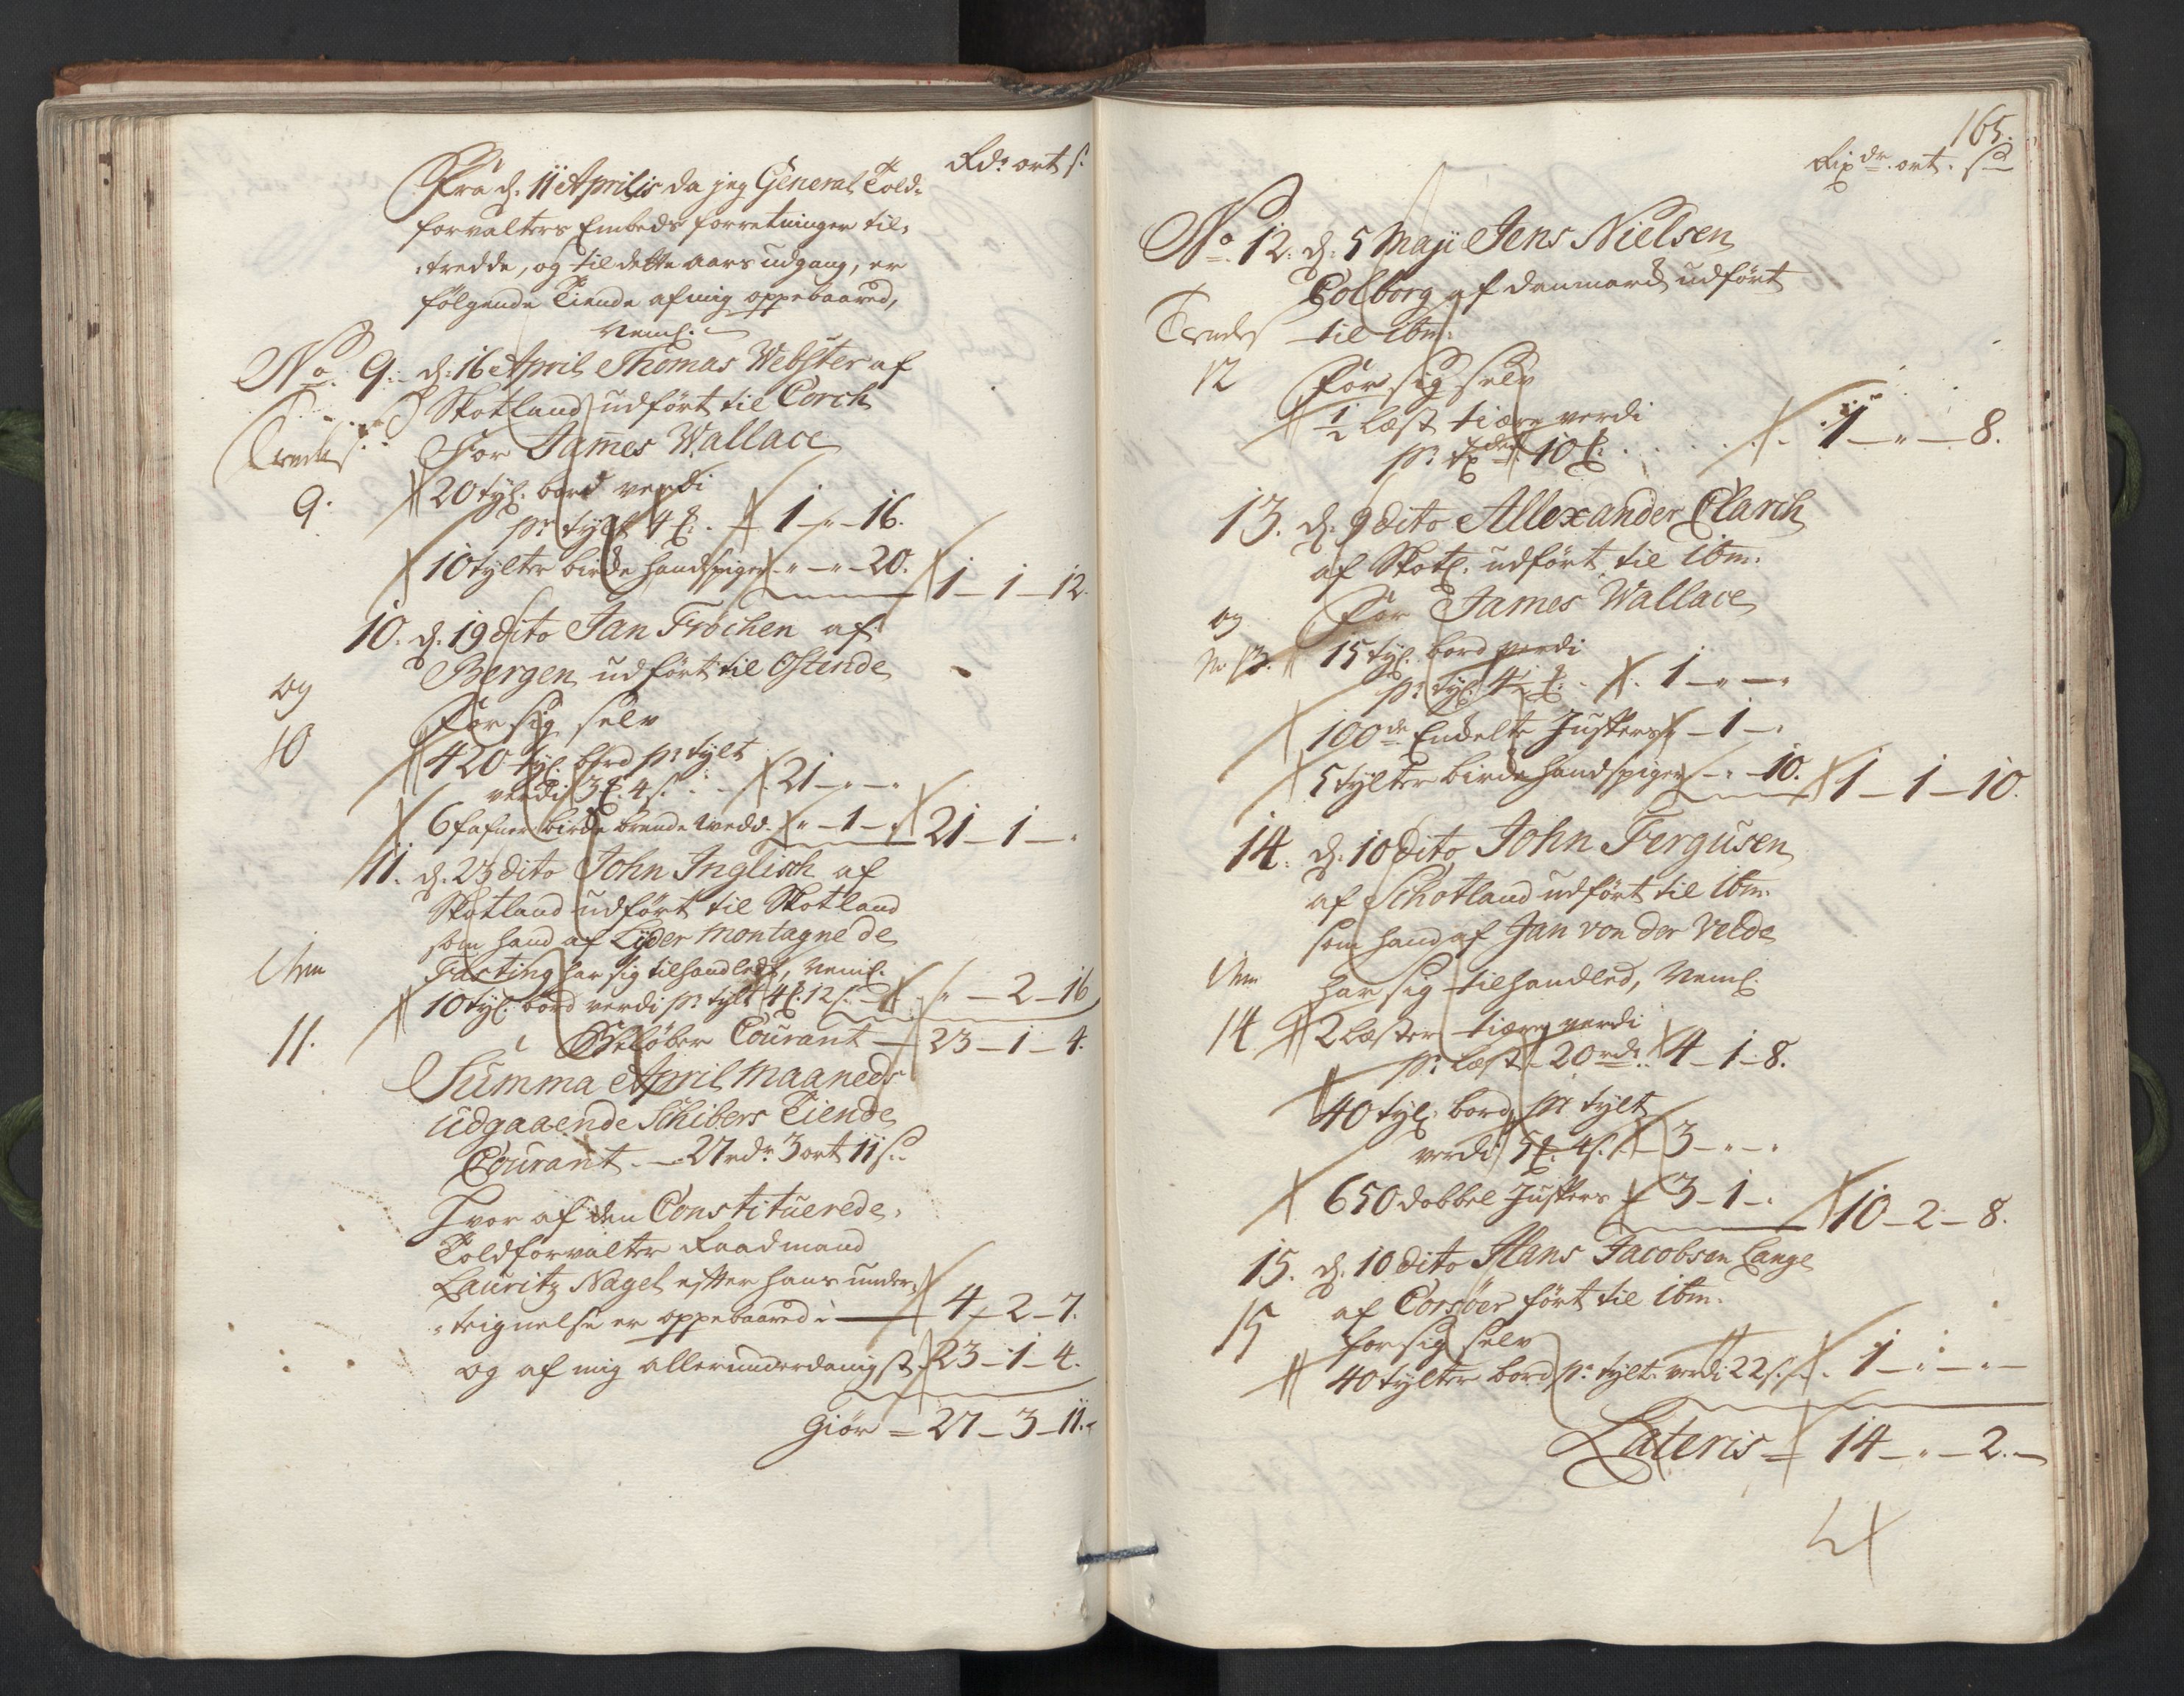 Rdr ort s.
Fra d. 11 Aprilis da jeg General Told-
forvalters Embeds forretninger til-
tredde, og til dette aars udgang, er
følgende Tiende af mig oppebaared,
Neml.
No. 9. d. 16 April Thomas Webster af
Skotland udført til Corch
For James Wallace
9. 20 tyl. bord verdi
pr tylt 4 . 1 - " - 16.
10 tylter birche handspiger " - " - 20. 1 - 1 - 12.
10. d. 19 dito Jan Frochen af
Bergen udført til Ostende
og
For sig selv
10
420 tyl. bord pr tylt
verdi 3 . 4 s. 21 - " - "
6 fafner birche brende vedd. " - 1 - " 21 - 1 - "
11. d. 23 dito John Inglisch af
Skotland udført til Skotland
som hand af Lyder Montagne de
Fasting har sig tilhandlet, Neml.
10 tyl. bord verdi pr tylt 4 . 12 s. " - 2 - 16
11. Beløber Courant 23 - 1 - 4.
Summa April Maaneds
udgaaende Schibers Tiende
Courant. 27 rdr 3 ort 11 s.
Hvor af den Constituerede
Toldforvalter Raadmand
Lauritz Nagel efter hans under-
teignelse er oppebaared 4 - 2 - 7.
og af mig allerunderdanigst 23 - 1 - 4.
Giør = 27 - 3 - 11.
165.
Rixdr. ort. s
No. 12. d. 5 Maji Jens Nielsen
Colborg af Danmarch udført
til ibm.
12 For sig selv
1/2 læst tiære verdi
10 . 1 - " - 8.
13. d. 9 dito Allexander Clarch
af Skotl. udført til ibm.
og For James Wallace
No 13. 15 tyl. bord verdi
pr tyl. 4 1/2 . 1 - " - "
100de Endelte Juffers " - 1 - "
5 tylter birche handspiger " - " - 10. 1 - 1 - 10.
14. d. 10 dito John Fergusen
af Schotland udført til ibm.
som hand af Jan von der Velde
har sig tilhandled, Neml.
14 2 Læster tiære verdi
pr læst 20 rdr. 4 - 1 - 8.
40 tyl. bord pr tylt
verdi 5 . 4 s. 3 - " - "
650 dobbel Juffers 3 - 1 - " 10 - 2 - 8.
15. d. 10 dito Hans Jacobsen Lange
af Corsöer ført til ibm.
15 for sig selv
40 tylter bord pr tylt verdi 22 s. 1 - " - " -
Lateris = 14 - " - 2. -